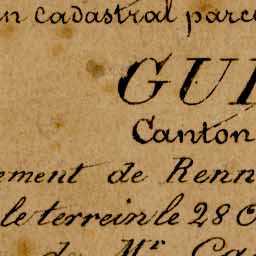 an cadastral parce
GUI
Canton
ement de Renn
le terrein le 28 O
de Mr. Ca